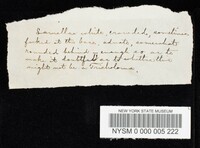 Lamellae white, crowded, sometimes
forked at the base, adnate, somewhat
rounded behind, enough so as to
make it doubtful as to whether this
might not be a Tricholoma.
NEW YORK STATE MUSEUM
NYSM 0 000 005 222